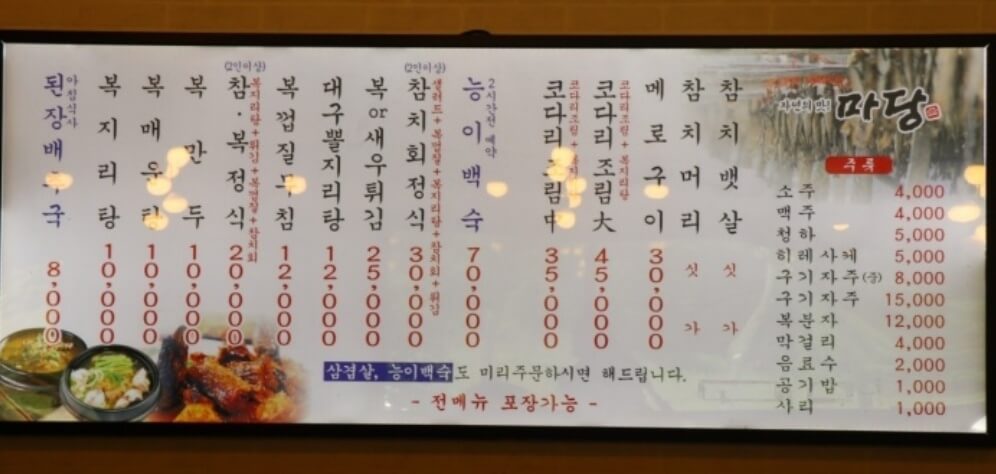 아침식사
된장배추국 8,000
복지리탕 10,000
복매운탕 10,000
복만두 10,000
(2인이상)
참·복정식 20,000
복지리탕+튀김+복껍질+참치회
복껍질무침 12,000
대구뽈지리탕 12,000
복or새우튀김 25,000
(2인이상)
참치회정식 30,000
샐러드+복껍질+복지리탕+참치회+튀김
2시간전 예약
능이백숙 70,000
코다리조림+복지리탕
코다리조림 中 35,000
코다리조림+복지리탕
코다리조림 大 45,000
메로구이 30,000
참치머리 싯가
참치뱃살 싯가
삼겹살, 능이백숙도 미리주문하시면 해드립니다.
- 전메뉴 포장가능 -
자연의 맛! 마당
주류
소주 4,000
맥주 4,000
청하 5,000
히레사케 5,000
구기자주(중) 8,000
구기자주 15,000
복분자 12,000
막걸리 4,000
음료수 2,000
공기밥 1,000
사리 1,000